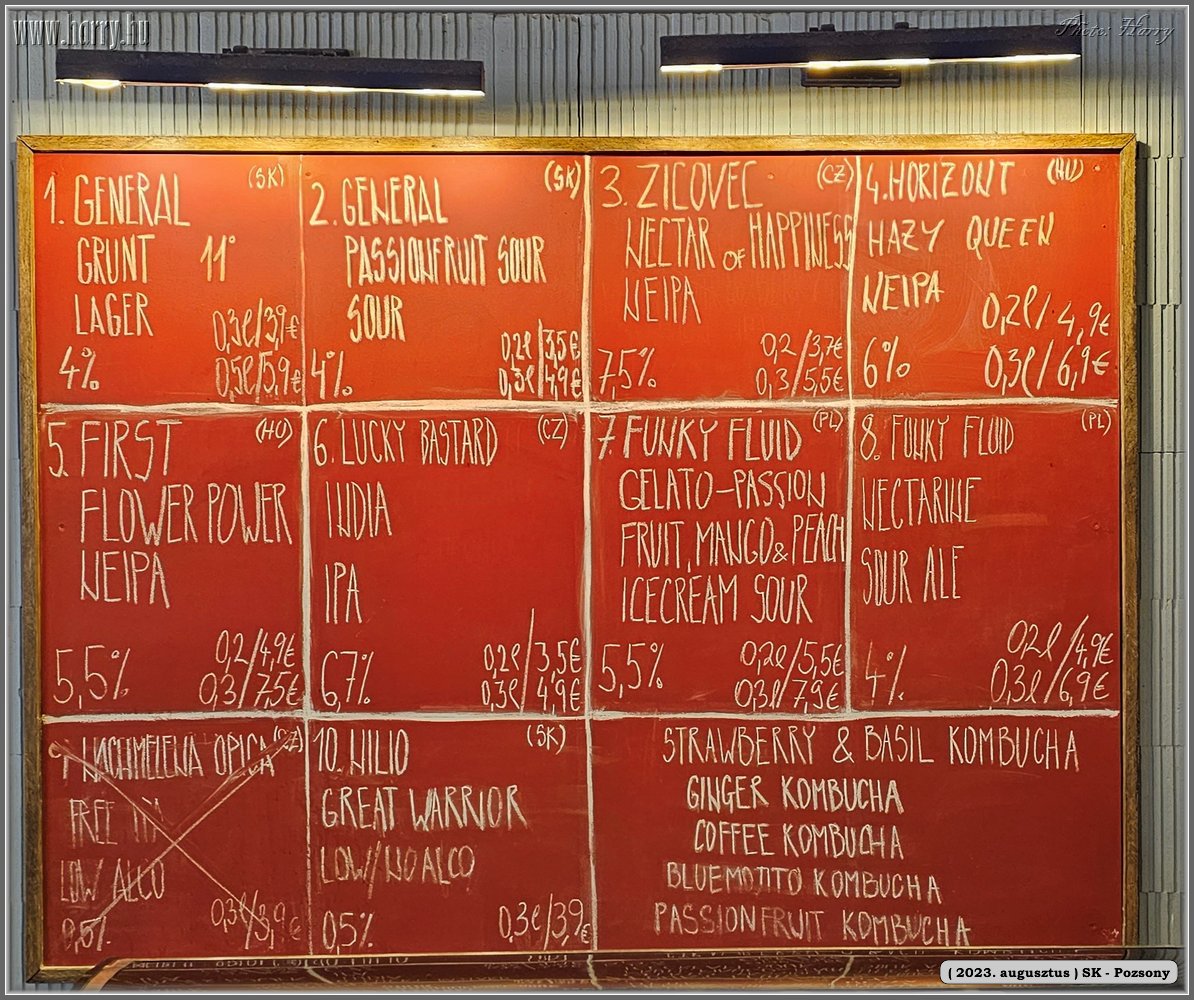 www.horry.hu
Photo: Horry
1. GENERAL (SK)
GRUNT 11°
LAGER
0,3l/3,9€
4% 0,5l/5,9€
2. GENERAL (SK)
PASSIONFRUIT SOUR
SOUR
0,2l/3,5€
4% 0,3l/4,9€
3. ZICOVEC (CZ)
NECTAR OF HAPPINESS
NEIPA
0,2/3,7€
7,5% 0,3/5,5€
4. HORIZONT (HU)
HAZY QUEEN
NEIPA
0,2l/4,9€
6% 0,3l/6,9€
5. FIRST (HU)
FLOWER POWER
NEIPA
0,2/4,9€
5,5% 0,3/7,5€
6. LUCKY BASTARD (CZ)
INDIA
IPA
0,2l/3,5€
6,7% 0,3l/4,9€
7. FUNKY FLUID (PL)
GELATO-PASSION
FRUIT, MANGO & PEACH
ICECREAM SOUR
0,2l/5,5€
5,5% 0,3l/7,9€
8. FUNKY FLUID (PL)
NECTARINE
SOUR ALE
0,2l/4,9€
4% 0,3l/6,9€
NACHMELENA OPICA (CZ)
FREE
LOW ALCO
0,5% 0,3l/3,9€
10. NILIO (SK)
GREAT WARRIOR
LOW/NO ALCO
0,5% 0,3l/3,9€
STRAWBERRY & BASIL KOMBUCHA
GINGER KOMBUCHA
COFFEE KOMBUCHA
BLUEMOJITO KOMBUCHA
PASSIONFRUIT KOMBUCHA
( 2023. augusztus ) SK - Pozsony